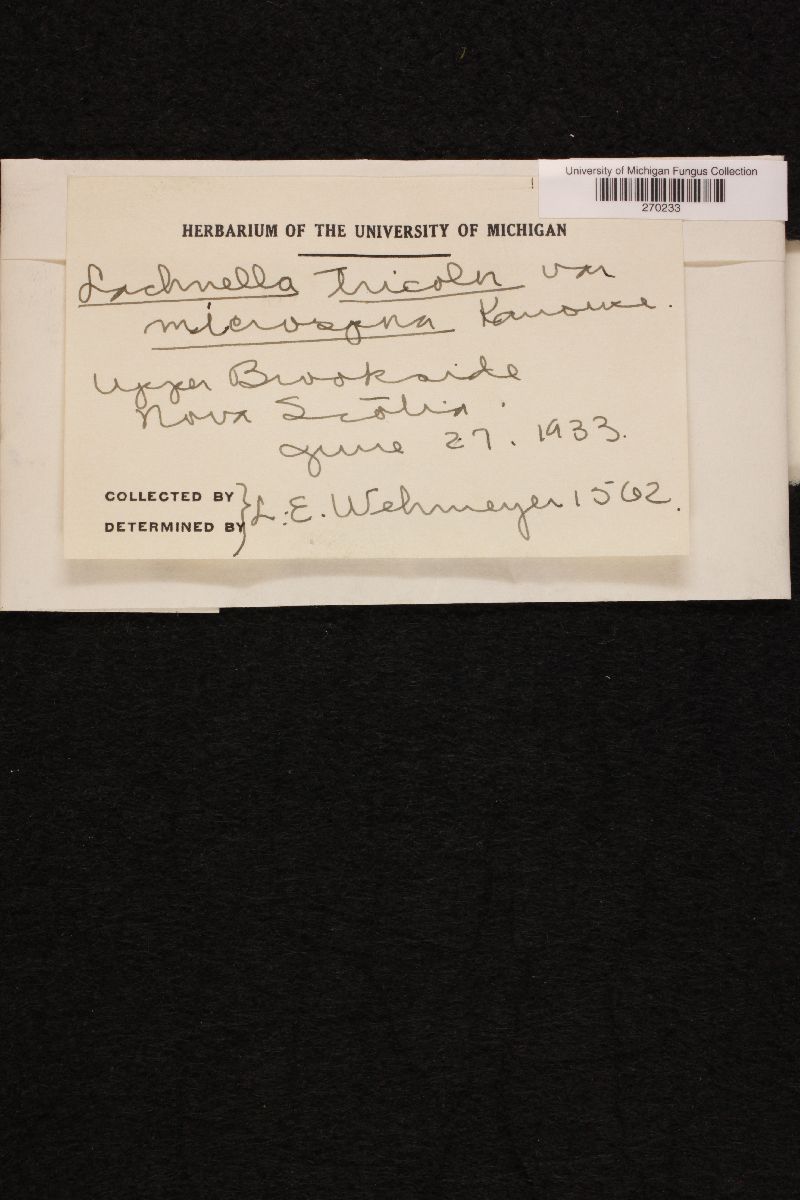 University of Michigan Fungus Collection
270233
HERBARIUM OF THE UNIVERSITY OF MICHIGAN
Lachnella tricolor var
microspora Kanouse.
Upper Brookside
Nova Scotia.
June 27. 1933.
COLLECTED BY
DETERMINED BY } L. E. Wehmeyer 1562.